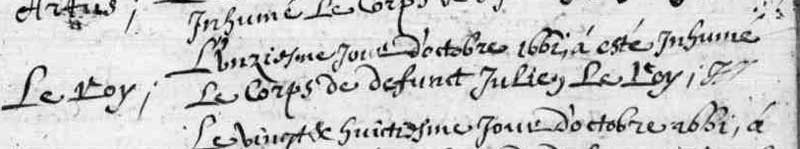 Artus;
Inhumé Le Corps de
L'unziesme Jour d'octobre 1661, á esté Inhumé
Le Roy; Le Corps de defunct Julien Le Roy;
Le vingt & huictiesme Jour d'octobre 1661, á